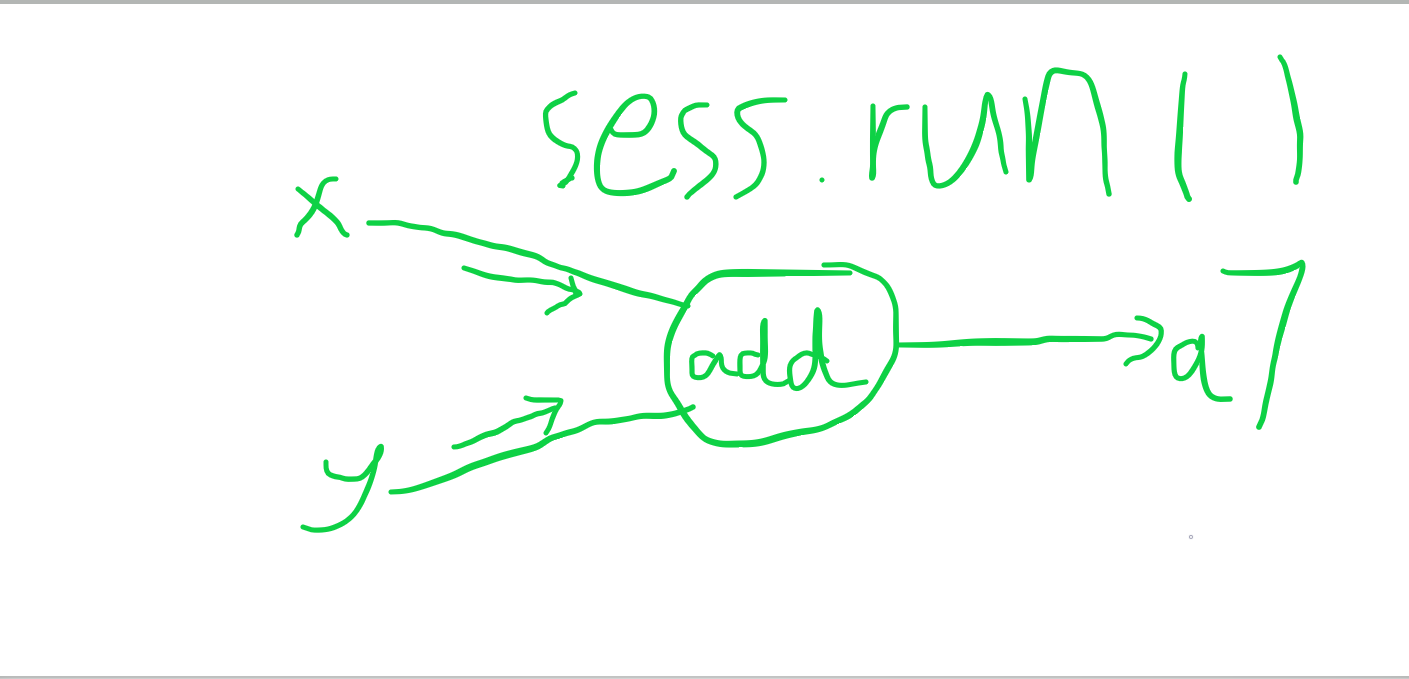 sess.run()
x
add
a 7
y